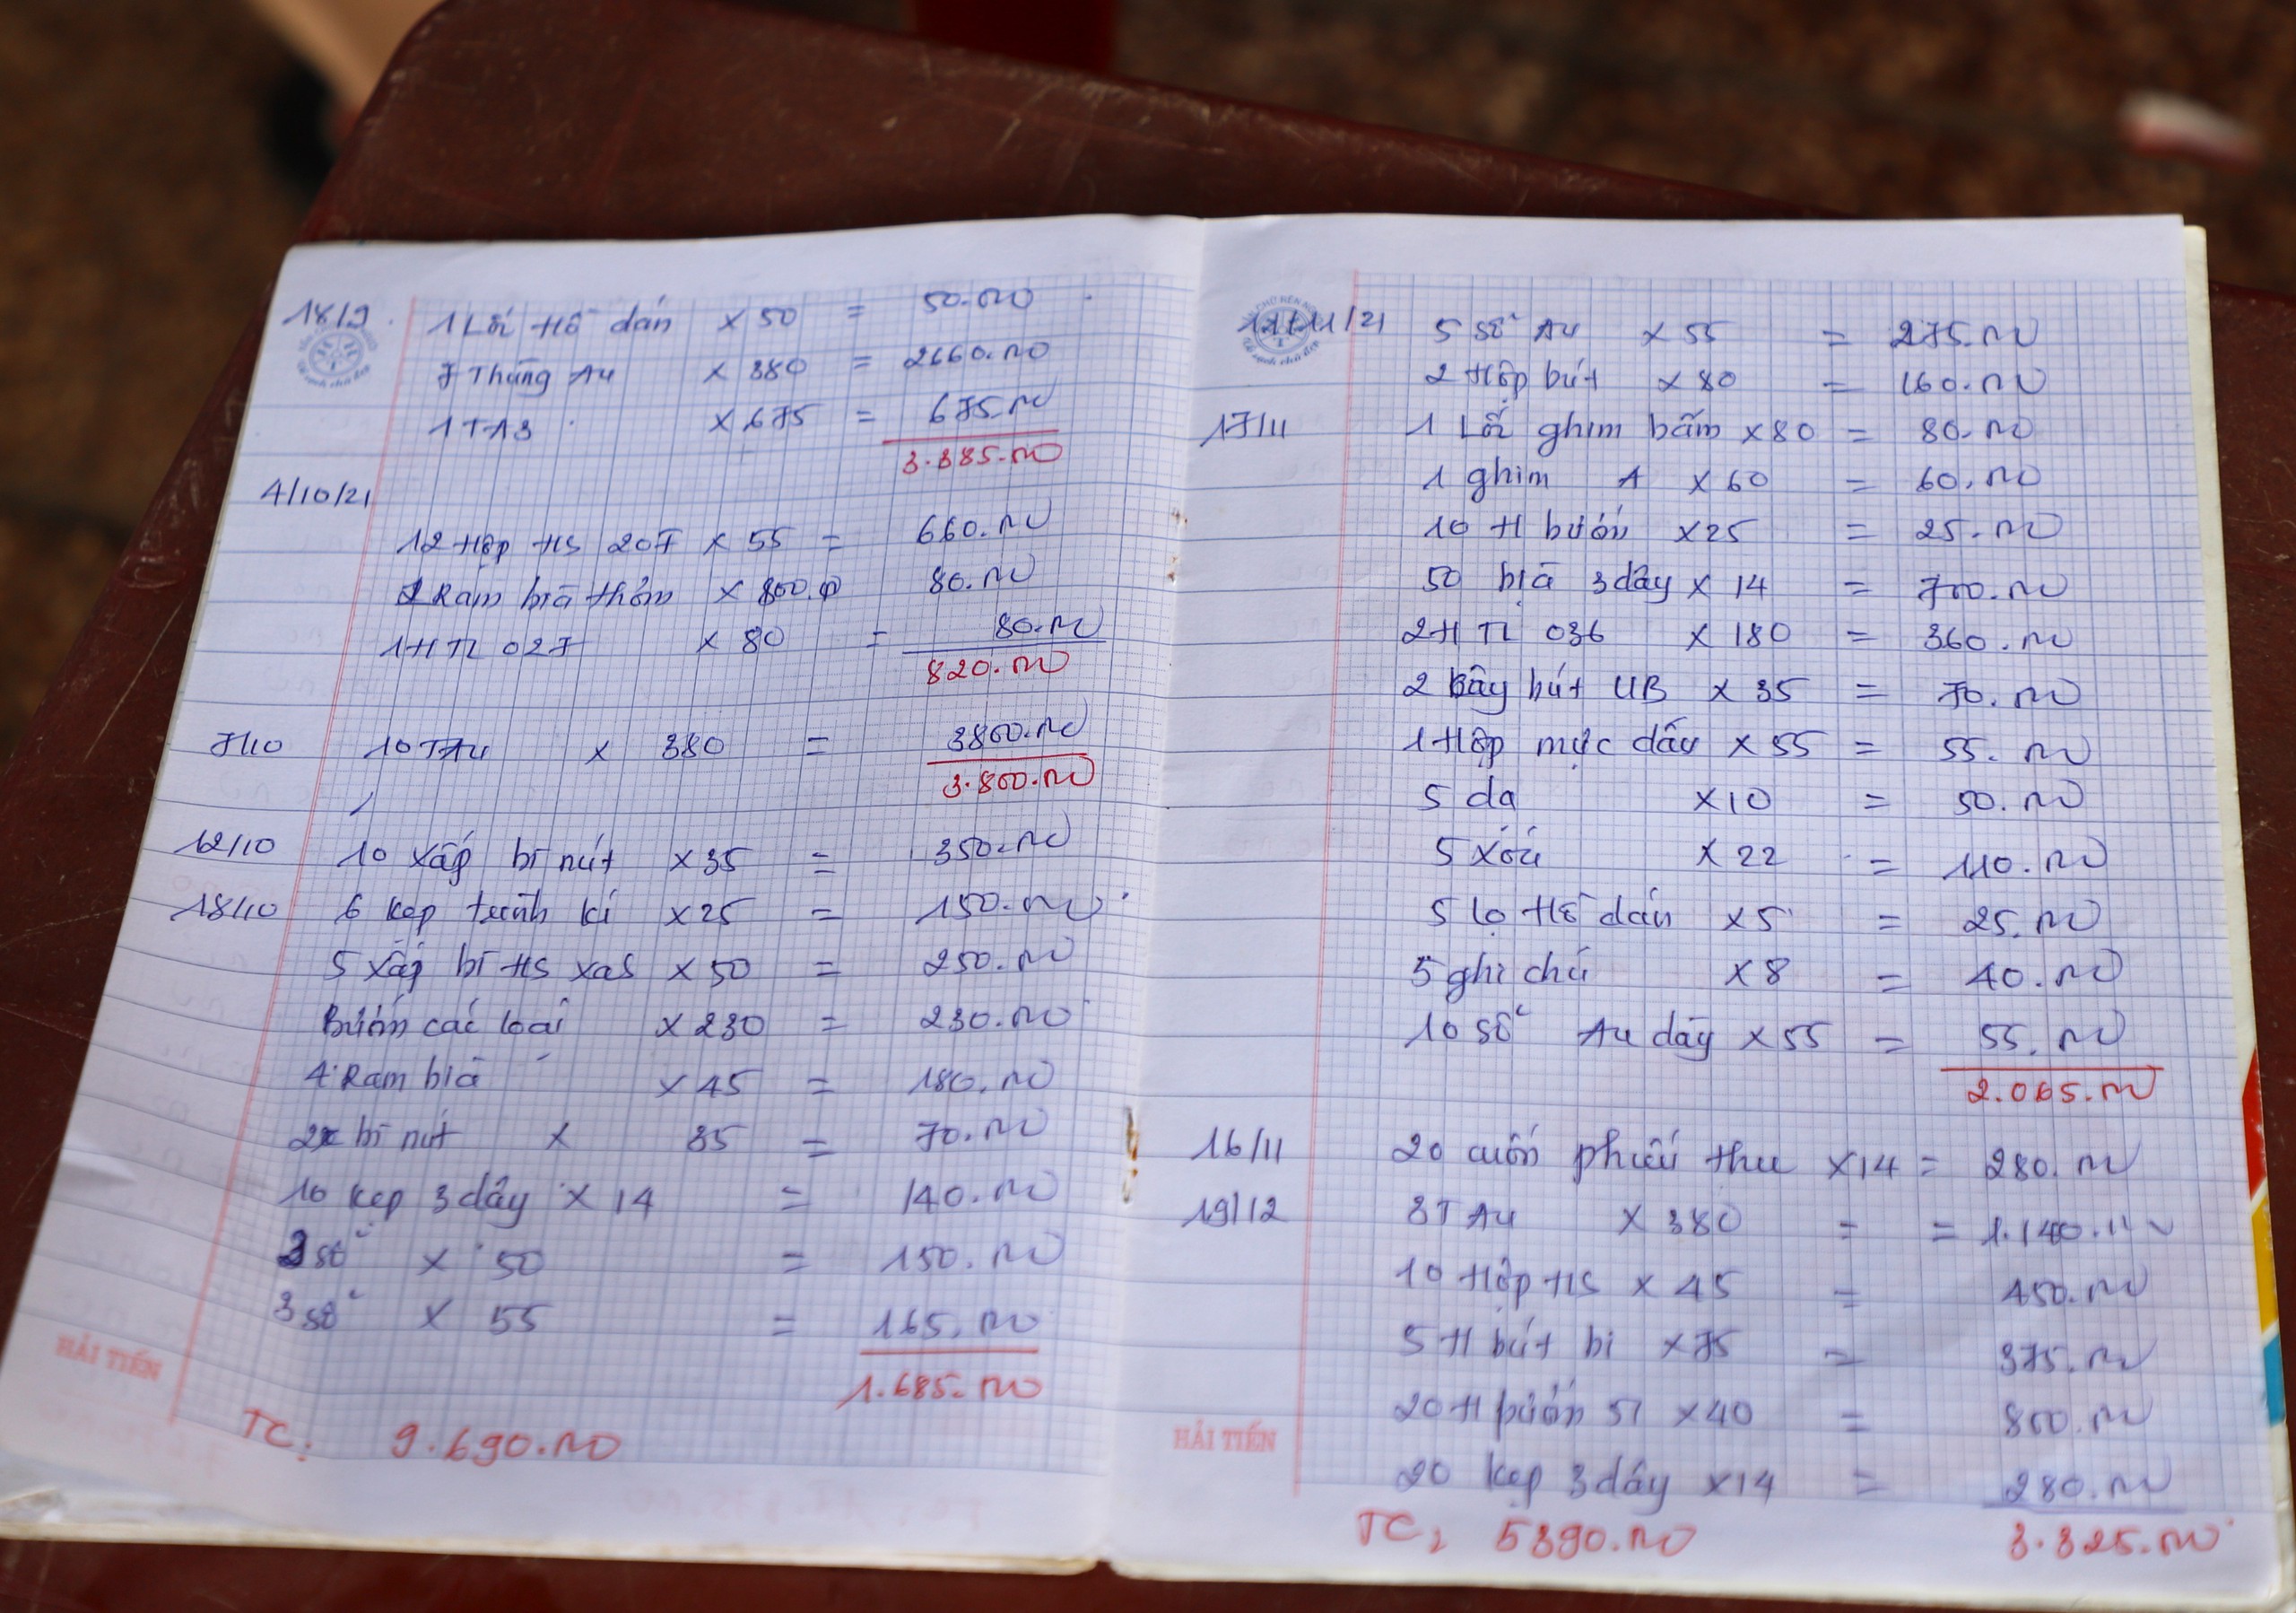 18/9 1 Lối Hồ dán x 50 = 50.000
7 Thùng A4 x 380 = 2660.000
1 TA3 x 675 = 675.000
3.385.000
4/10/21
12 Hộp HS 207 x 55 = 660.000
2 Ram bìa thơm x 800.0 80.000
1H TL 027 x 80 = 80.000
820.000
7/10 10 TA4 x 380 = 3800.000
3.800.000
12/10 10 xấp bì nút x 35 = 350.000
18/10 6 kẹp trình kí x 25 = 150.000
5 xấp bì HS xas x 50 = 250.000
Bướm các loại x 230 = 230.000
4 Ram bìa x 45 = 180.000
2x bì nút x 35 = 70.000
10 kẹp 3 dây x 14 = 140.000
3 sổ x 50 = 150.000
3 sổ x 55 = 165.000
1.685.000
HẢI TIẾN
TC: 9.690.000
12/11/21 5 sổ A4 x 55 = 275.000
2 Hộp bút x 80 = 160.000
17/11 1 Lối ghim bấm x 80 = 80.000
1 ghim A x 60 = 60.000
10 H bướm x 25 = 25.000
50 bìa 3 dây x 14 = 700.000
2H TL 036 x 180 = 360.000
2 cây bút UB x 35 = 70.000
1 Hộp mực dấu x 55 = 55.000
5 dạ x 10 = 50.000
5 xóa x 22 = 110.000
5 lọ Hồ dán x 5 = 25.000
5 ghi chú x 8 = 40.000
10 sổ A4 dày x 55 = 55.000
2.065.000
16/11 20 cuốn phiếu thu x 14 = 280.000
19/12 3T A4 x 380 = = 1.140.000
10 Hộp HS x 45 = 450.000
5 H bút bi x 75 = 375.000
20 H bướm 51 x 40 = 800.000
20 kẹp 3 dây x 14 = 280.000
HẢI TIẾN
TC: 5390.000 3.325.000